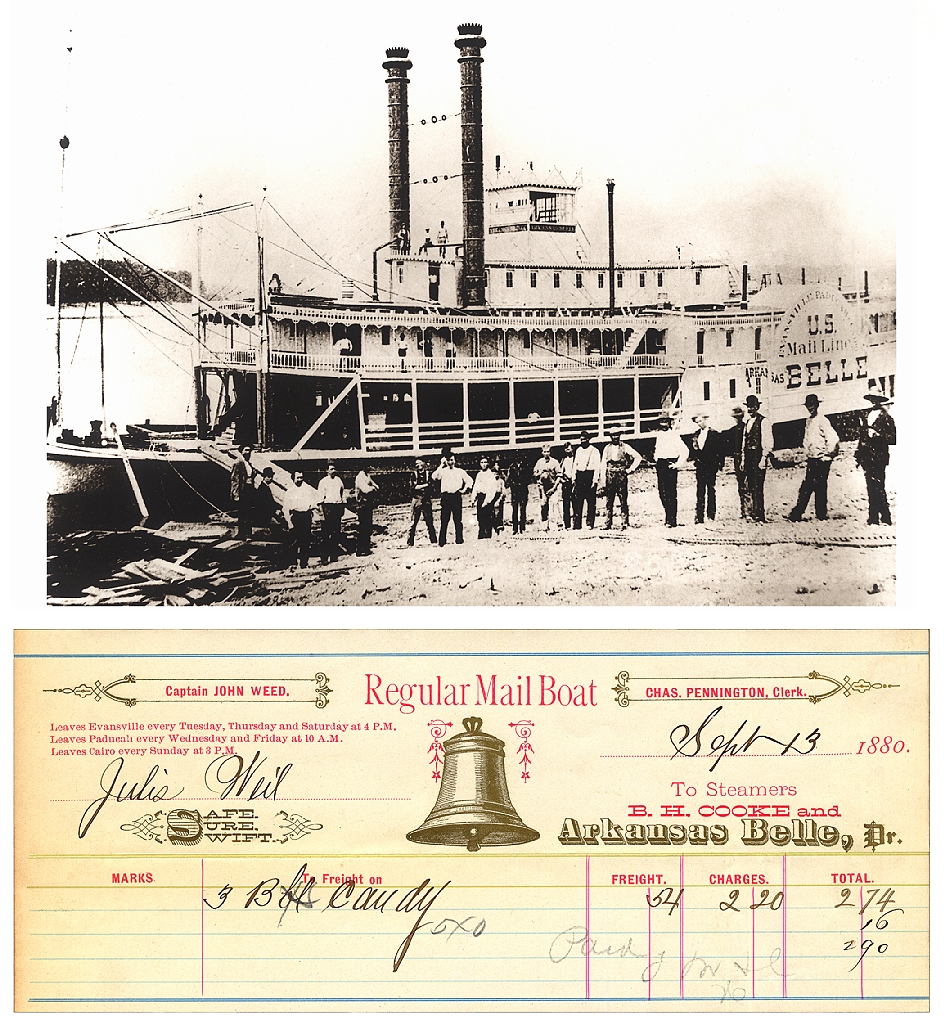 U.S.
Mail Line
ARKANSAS BELLE
Captain JOHN WEED.
Regular Mail Boat
CHAS. PENNINGTON, Clerk.
Leaves Evansville every Tuesday, Thursday and Saturday at 4 P.M.
Leaves Paducah every Wednesday and Friday at 10 A.M.
Leaves Cairo every Sunday at 3 P.M.
Sept 13 1880.
Julis Weil
To Steamers
B. H. COOKE and
SAFE. SURE. SWIFT.
Arkansas Belle, Dr.
MARKS. To Freight on FREIGHT. CHARGES. TOTAL.
3 Candy 54 2 20 2 74
16
2 90